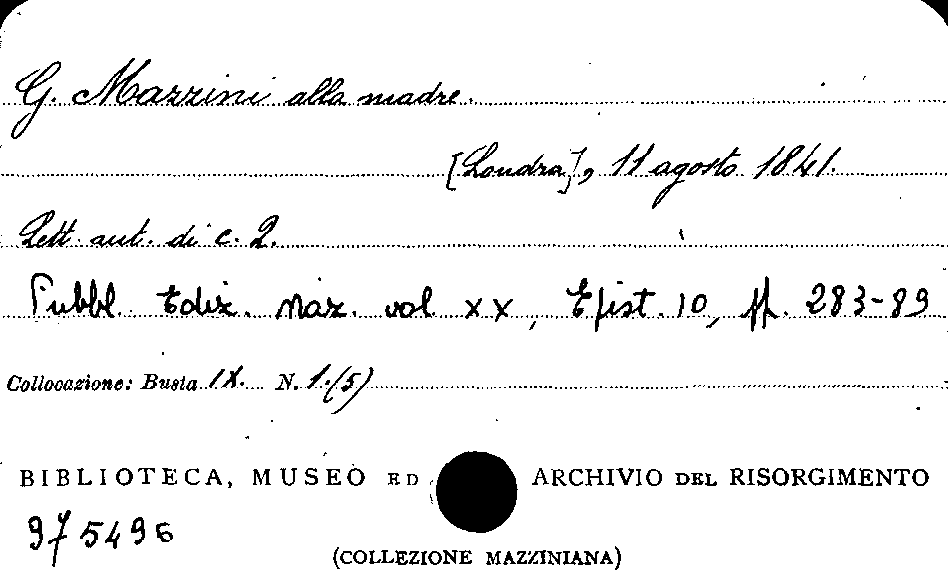 G. Mazzini alla madre.
[Londra], 11 agosto 1841.
Lett. aut. di c. 2.
Pubbl. Ediz. Naz. vol XX, Epist. 10, pp. 283-89
Collocazione: Busta IX. N. 1.(5)
BIBLIOTECA, MUSEO ED ARCHIVIO DEL RISORGIMENTO
975496
(COLLEZIONE MAZZINIANA)